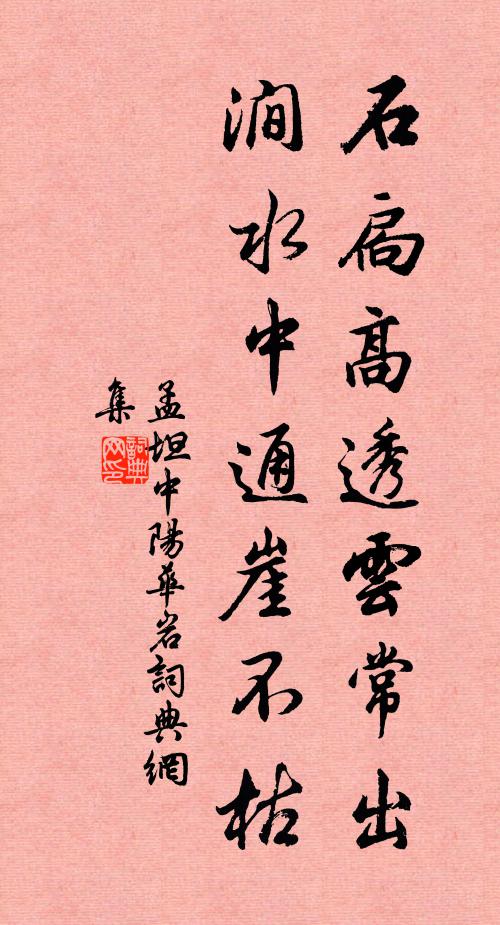 石扃高透雲常出
澗水中通崖不枯
孟坦中陽華岩詞典網
集
詞典
网印